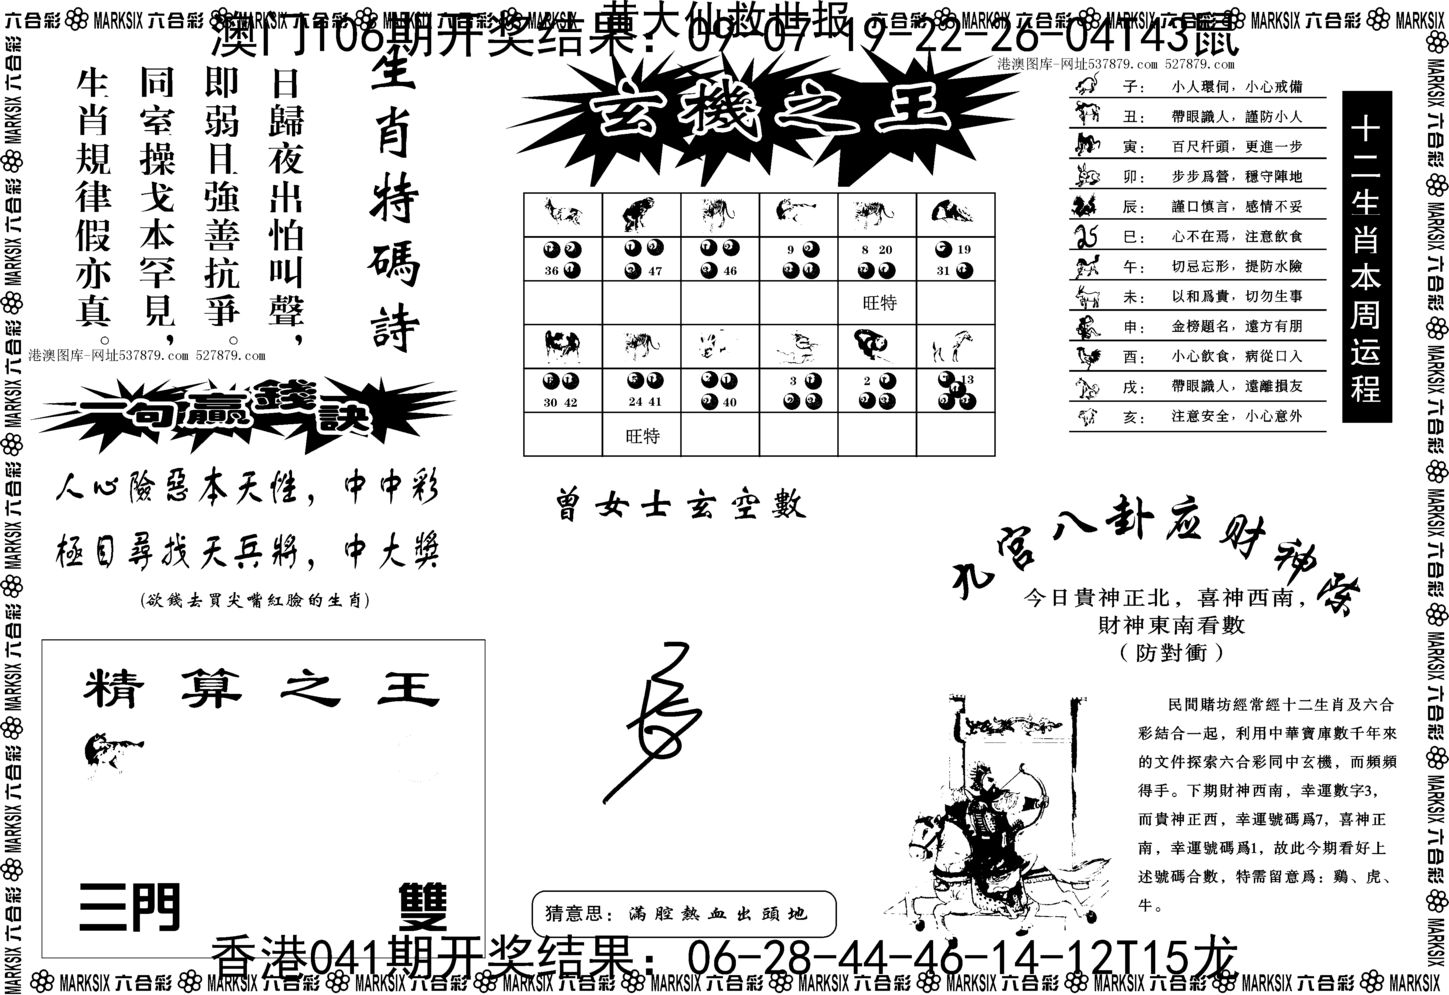 六合彩 MARKSIX 六合彩 MARKSIX 六合彩
黄大仙救世报
澳门106期开奖结果：09-07-19-22-26-04T43鼠
港澳图库-网址537879.com 527879.com
生肖特碼詩
日歸夜出怕叫聲，
即弱且強善抗爭。
同室操戈本罕見，
生肖規律假亦真。
港澳图库-网址537879.com 527879.com
玄機之王
36
47
46
9
8 20
19
31
旺特
30 42
24 41
40
3
2
13
旺特
十二生肖本周运程
子： 小人環伺，小心戒備
丑： 帶眼識人，謹防小人
寅： 百尺杆頭，更進一步
卯： 步步爲營，穩守陣地
辰： 謹口慎言，感情不妥
巳： 心不在焉，注意飲食
午： 切忌忘形，提防水險
未： 以和爲貴，切勿生事
申： 金榜題名，遠方有朋
酉： 小心飲食，病從口入
戌： 帶眼識人，遠離損友
亥： 注意安全，小心意外
一句贏錢訣
人心險惡本天性，中中彩
極目尋找天兵將，中大獎
(欲錢去買尖嘴紅臉的生肖)
精算之王
三門
雙
曾女士玄空數
猜意思：滿腔熱血出頭地
九宮八卦应财神榮
今日貴神正北，喜神西南，
財神東南看數
（防對衝）
民間賭坊經常經十二生肖及六合
彩結合一起，利用中華寶庫數千年來
的文件探索六合彩同中玄機，而頻頻
得手。下期財神西南，幸運數字3，
而貴神正西，幸運號碼爲7，喜神正
南，幸運號碼爲1，故此今期看好上
述號碼合數，特需留意爲：鷄、虎、
牛。
香港041期开奖结果：06-28-44-46-14-12T15龙
MARKSIX 六合彩 MARKSIX 六合彩 MARKSIX